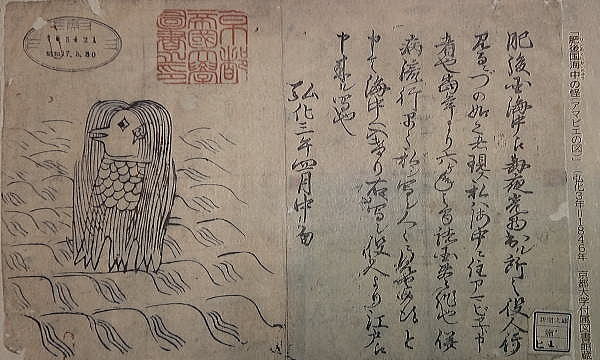 「肥後国海中の怪（アマビエの図）」（弘化3年＝1846年　京都大学付属図書館蔵
肥後国海中江毎夜光物出ル所之役人行
見るニづの如之者現ス私ハ海中ニ住アマビヱト申
者也当年より六ケ年之間諸国豊作也併
病流行早々私シ写シ人々ニ見せ候得と
申て海中へ入けり右写シ役人より江戸江
申来ル写也
弘化三年四月中旬
京都
帝国大学
図書之印